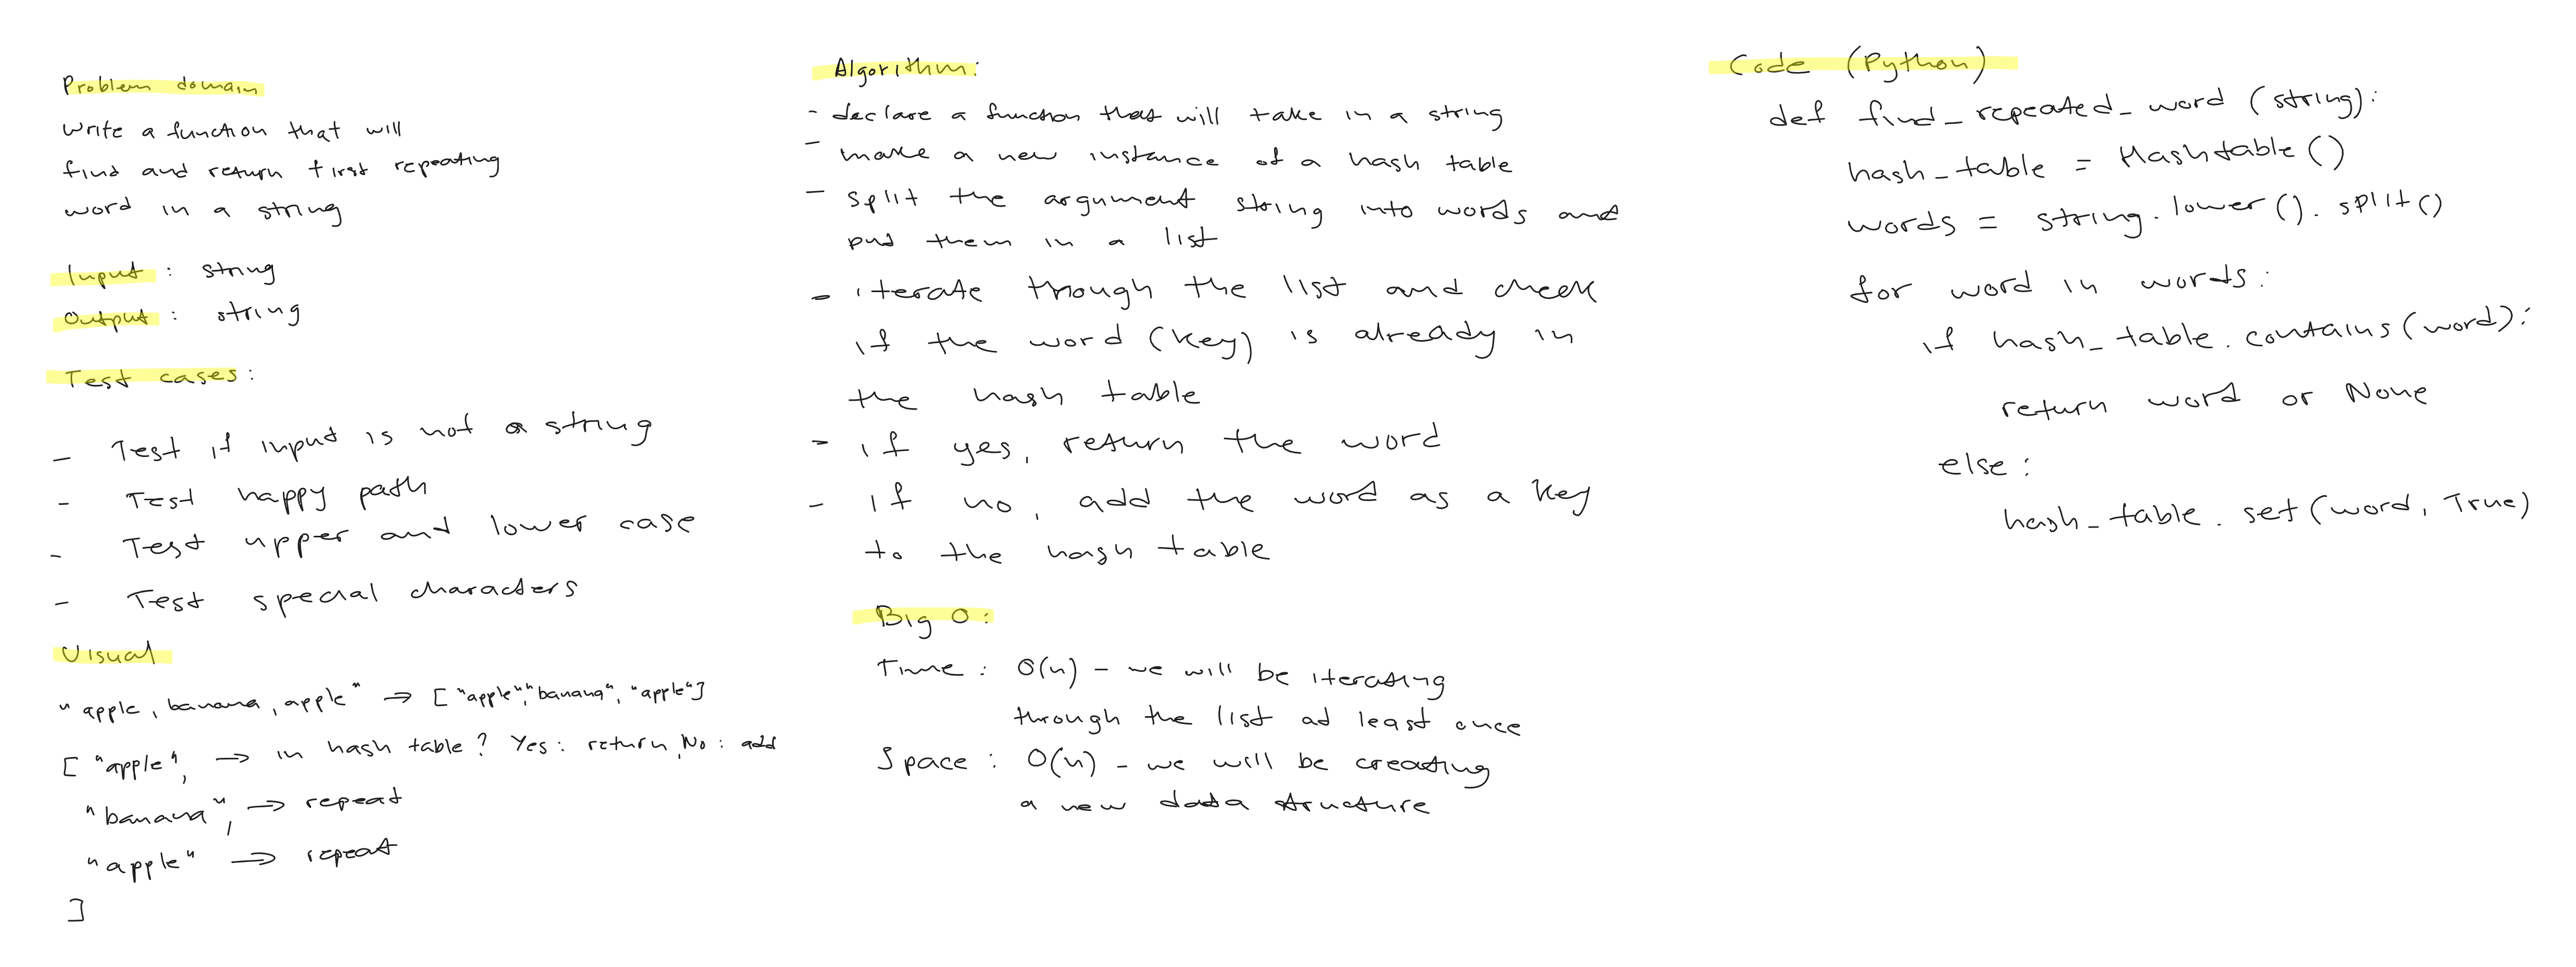 Problem domain
write a function that will
find and return first repeating
word in a string
Input : string
Output : string
Test cases :
- Test if input is not a string
- Test happy path
- Test upper and lower case
- Test special characters
Visual
"apple, banana, apple" → ["apple","banana", "apple"]
["apple", → in hash table? Yes: return, No: add
"banana", → repeat
"apple" → repeat
]
Algorithm:
- declare a function that will take in a string
- make a new instance of a hash table
- split the argument string into words and
put them in a list
- iterate through the list and check
if the word (key) is already in
the hash table
- if yes, return the word
- if no, add the word as a key
to the hash table
Big O:
Time : O(n) - we will be iterating
through the list at least once
Space : O(n) - we will be creating
a new data structure
Code (Python)
def find_repeated_word (string):
hash_table = Hashtable()
words = string.lower().split()
for word in words:
if hash_table.contains(word):
return word or None
else:
hash_table.set(word, True)